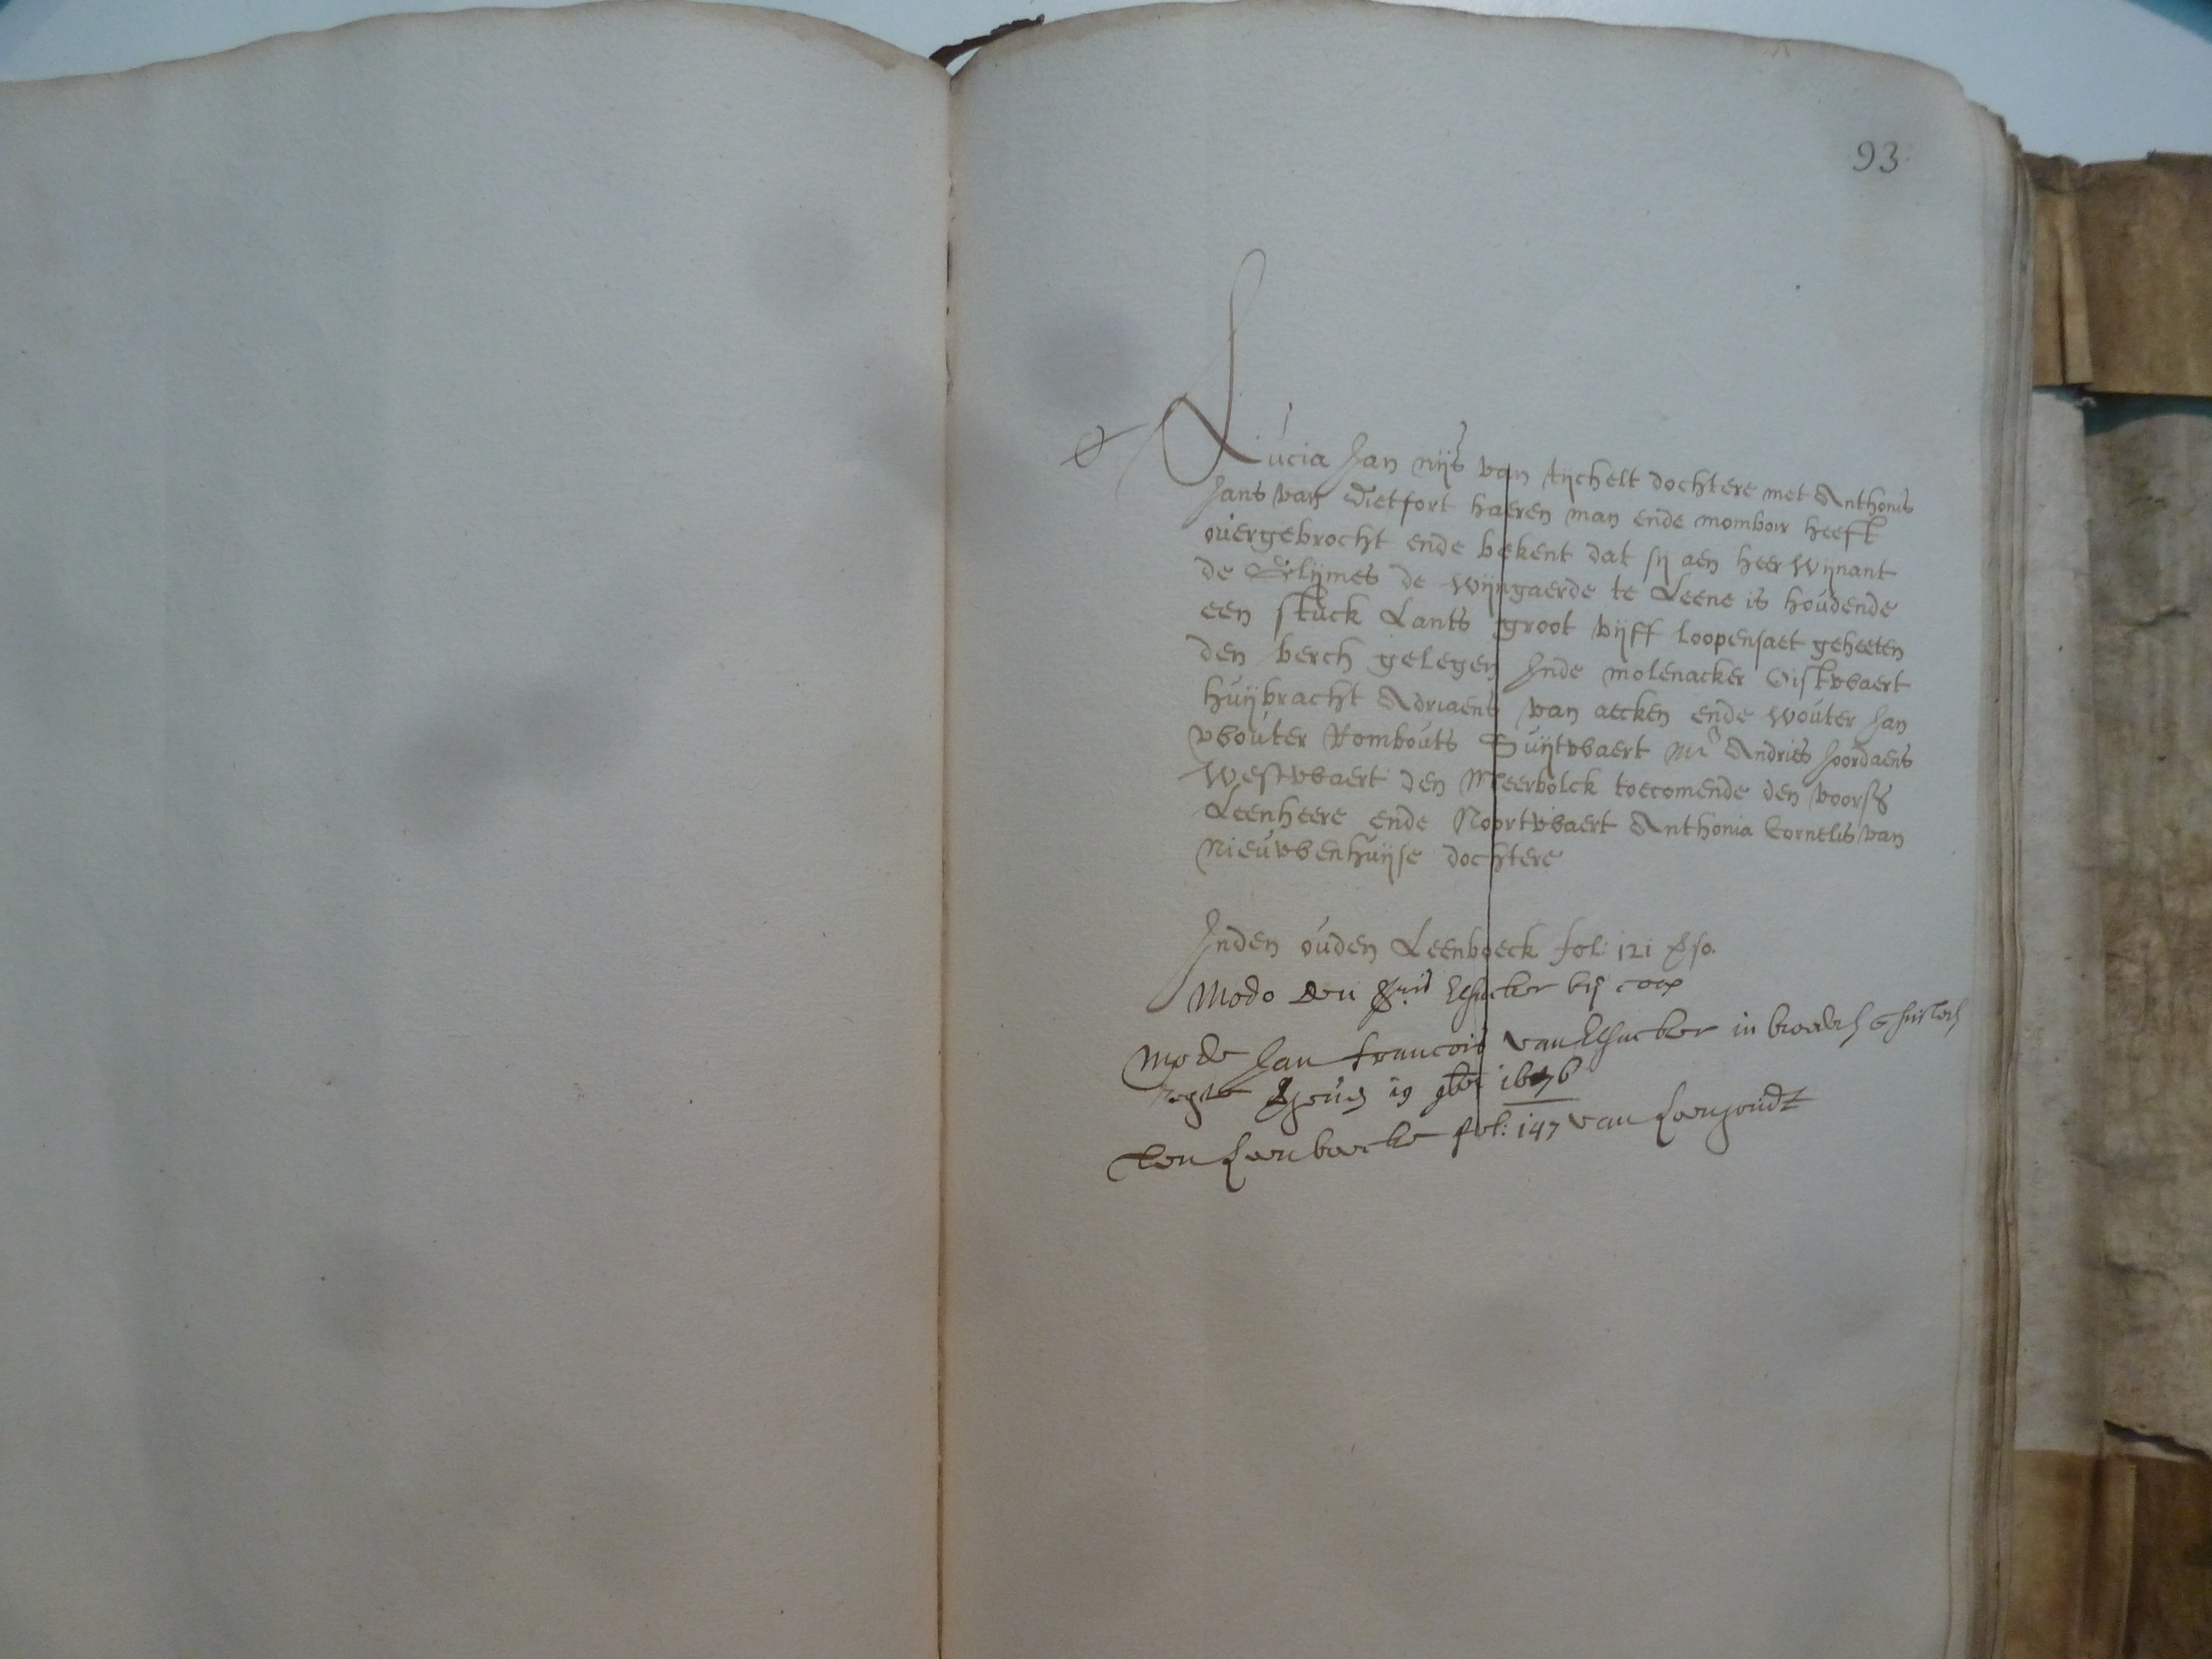 93
Lucia Jan nijs van tijchelt dochtere met Anthonis
Jans van dietfort haeren man ende momboir heeft
overgebrocht ende bekent dat sij aen heer Wijnant
de Glijmes de wijngaerde te Leene is houdende
een stuck Lants groot vijff loopensaet geheeten
den berch gelegen Inde molenacker Oistwaert
huijbracht Adriaens van aecken ende wouter Jan
wouter Rombouts Suijtwaert Mr Andries Joordaens
Westwaert den Meerbolck toecomende den voorss
Leenheere ende Noortwaert Anthonia Cornelis van
nieuwenhuijse dochtere
Inden ouden Leenboeck fol: 121 vso.
Modo den bij coop
Modo Jan francois van in
19 9ber 1676
den Leenboecke fol: 147 van